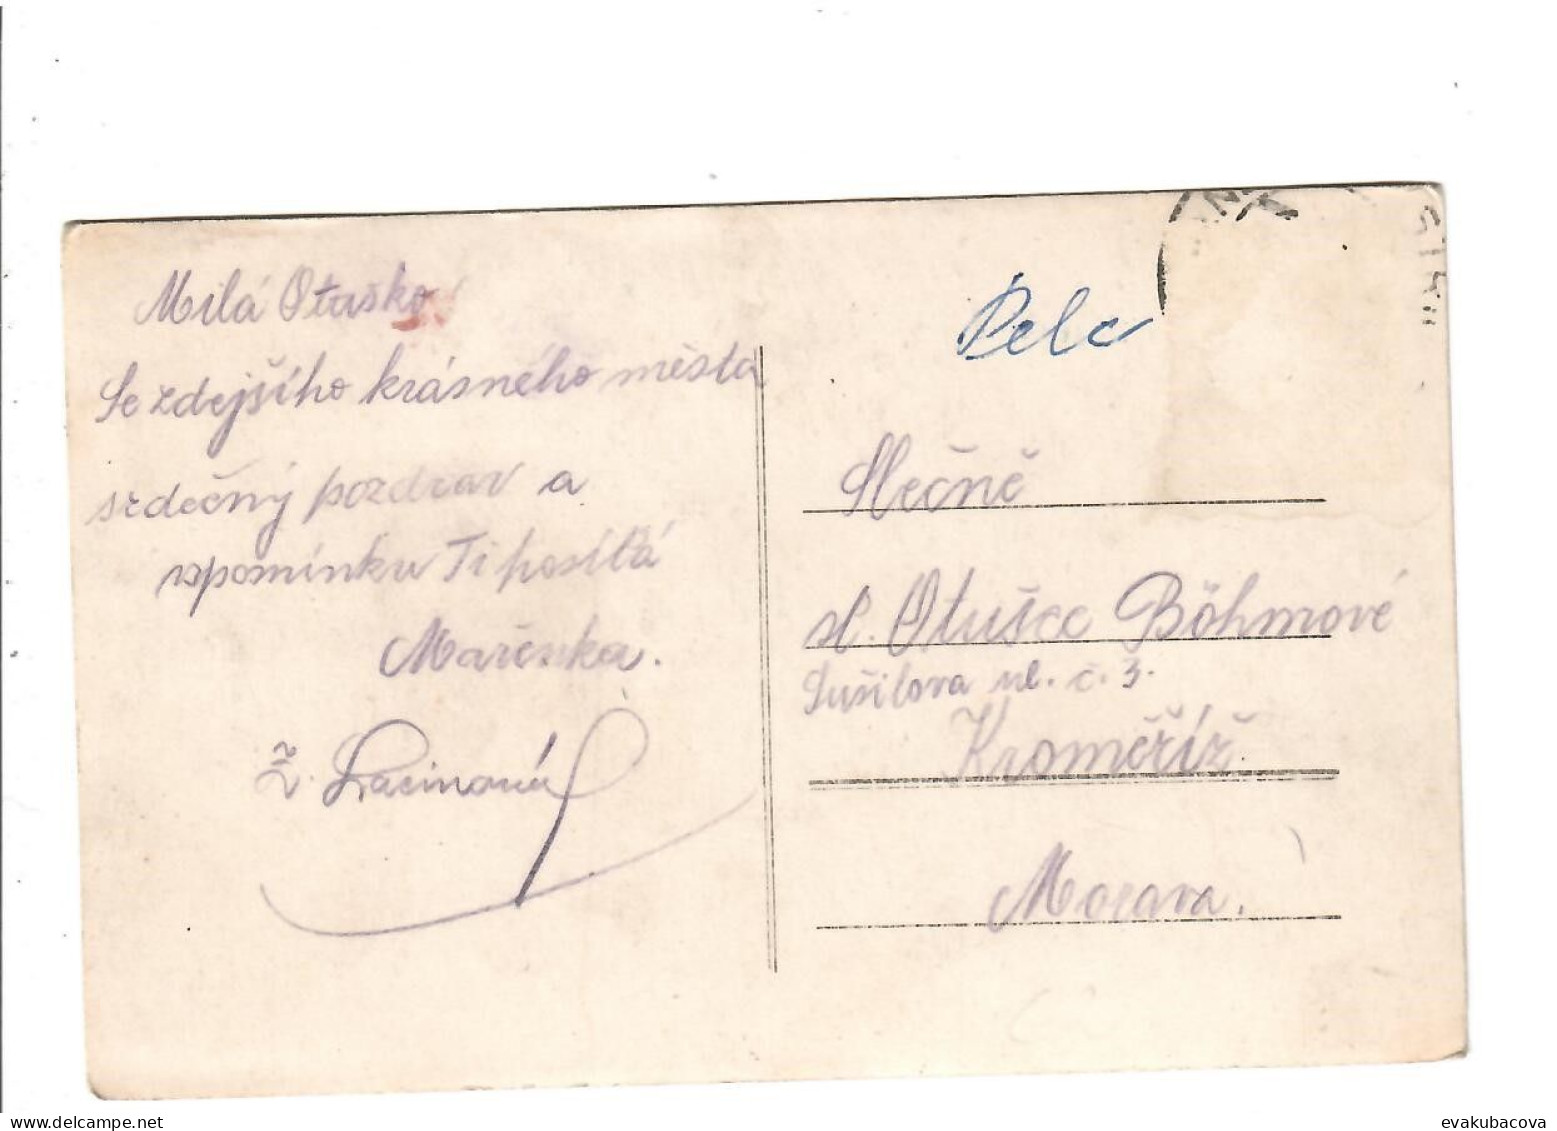 Milá Otuško
Se zdejšího krásného města
srdečný pozdrav a
vzpomínku Ti posílá
Mařenka.
Ž. Lacinová
Pelc
Slečně
sl. Otušce Böhmové
Sušilova ul. č. 3.
Kroměříž.
Morava.
delcampe.net
evakubacova